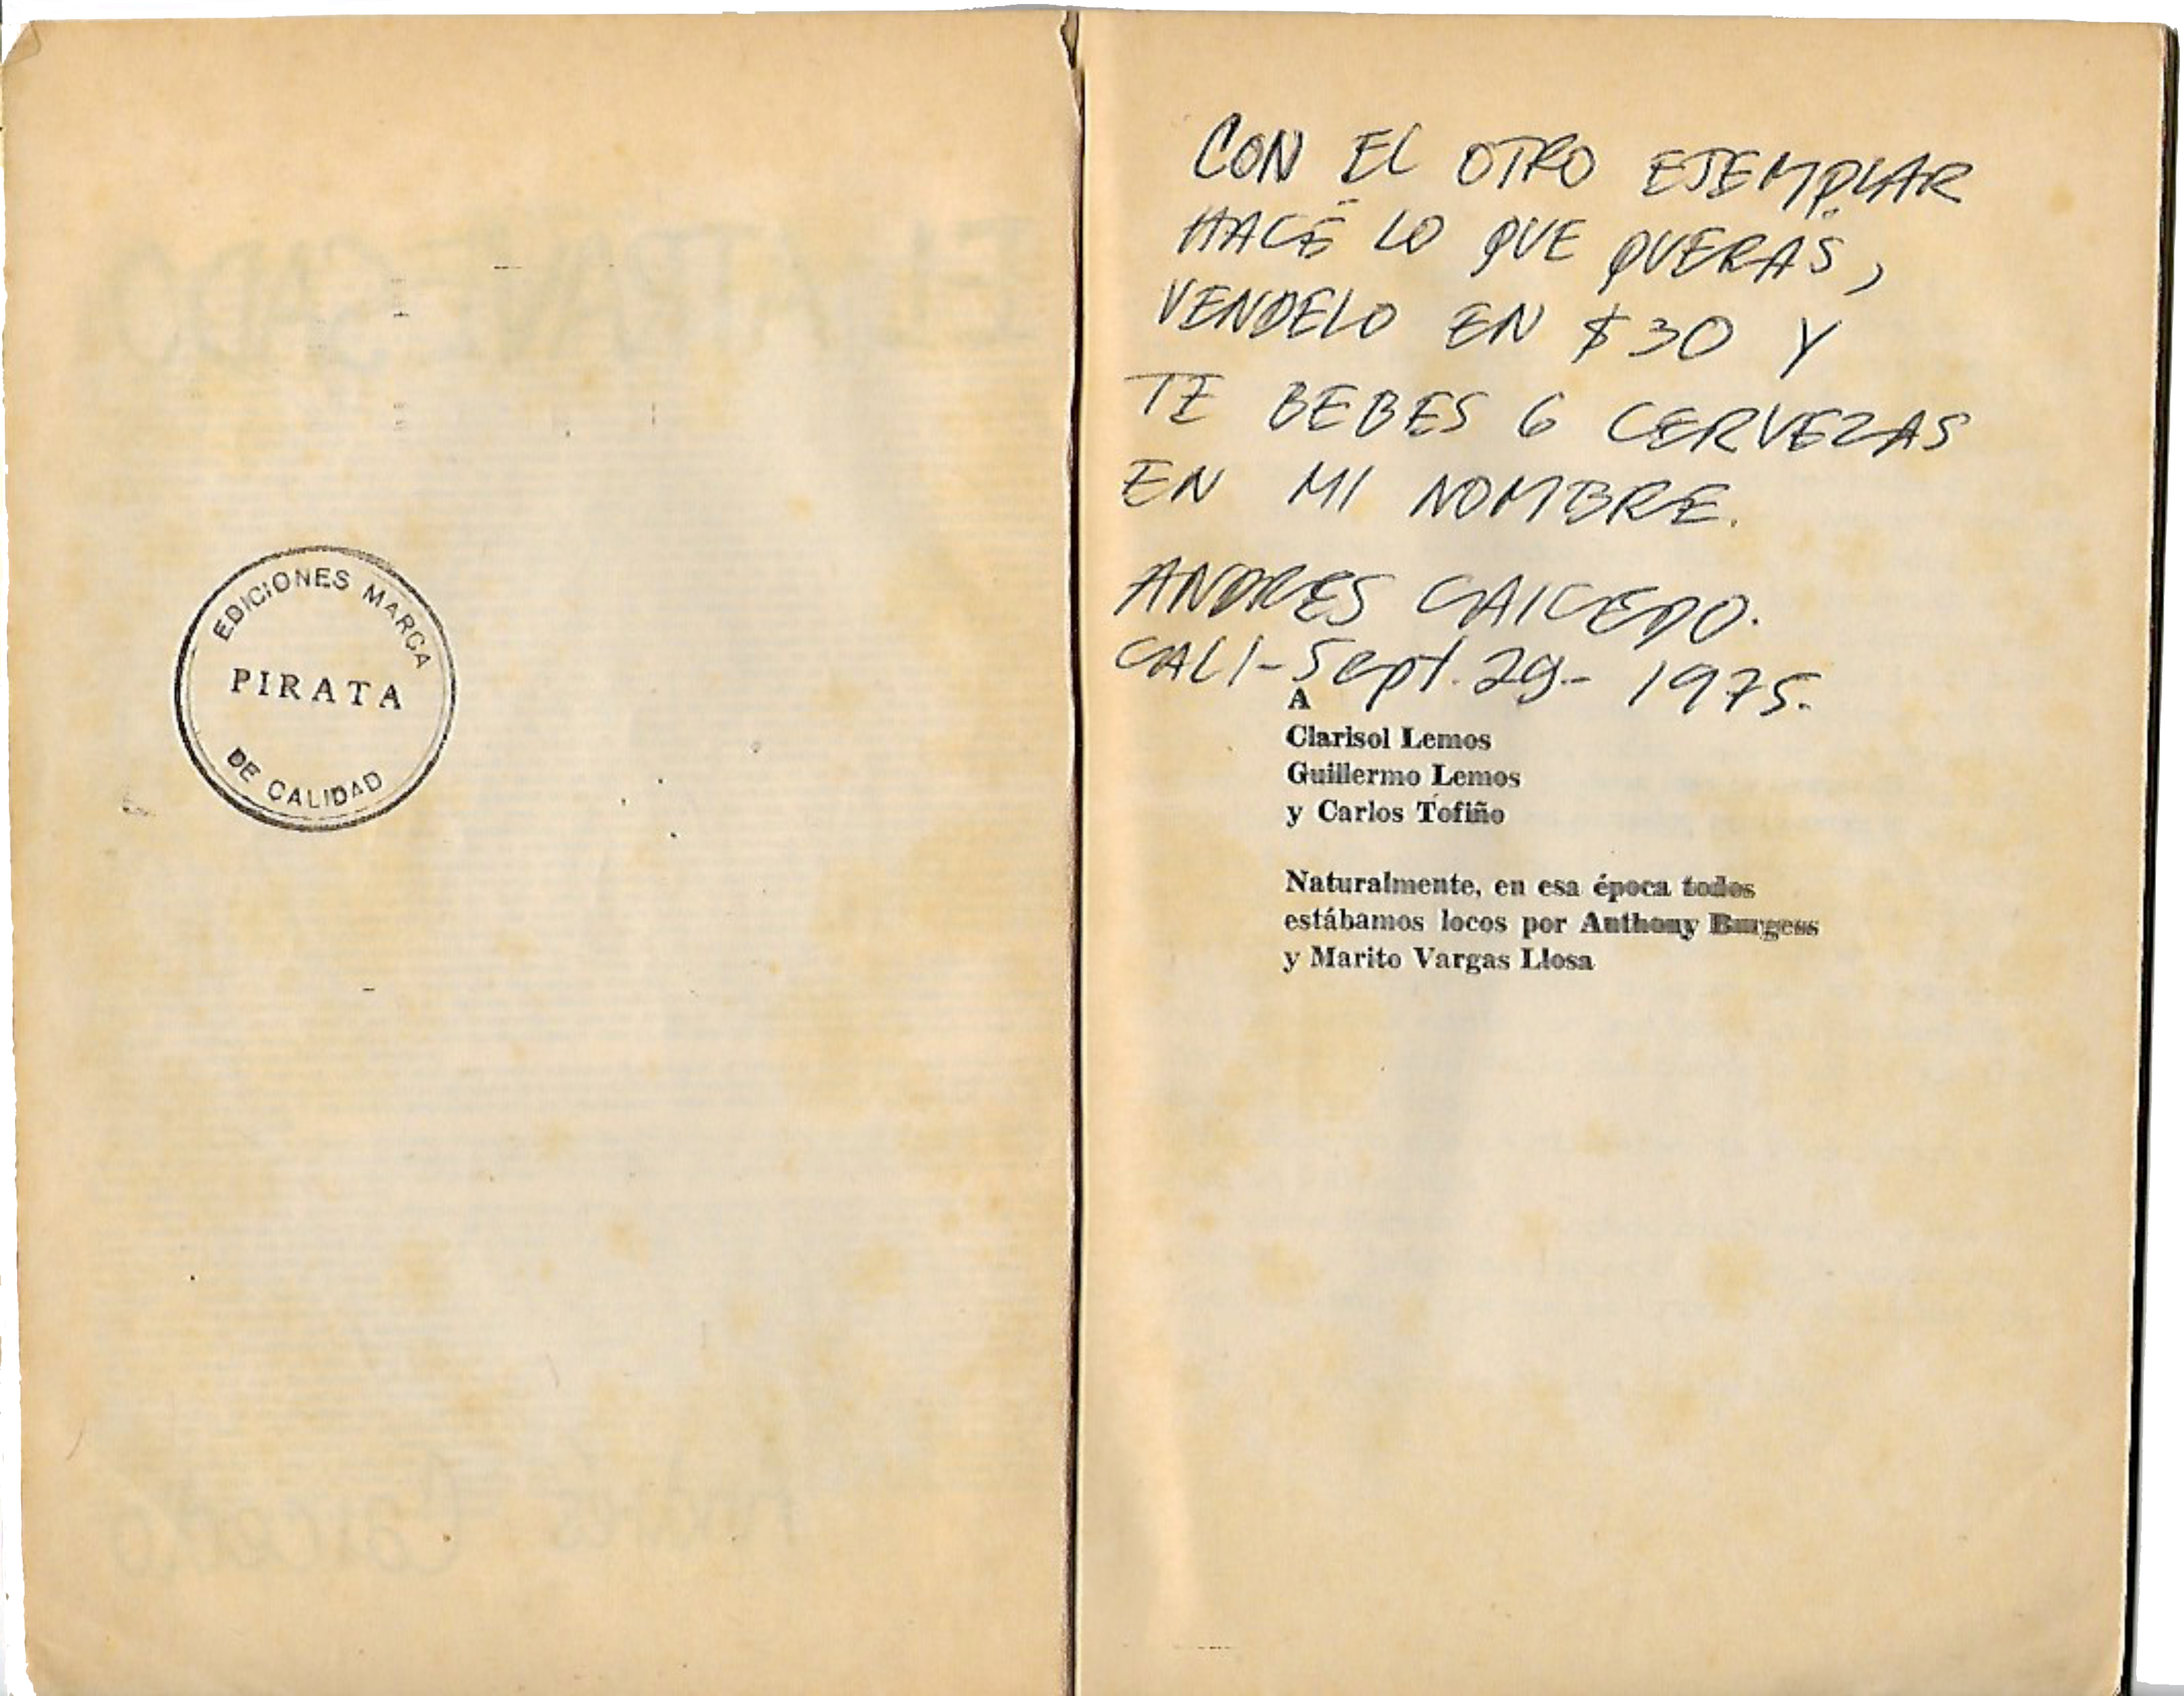 EDICIONES MARCA
PIRATA
DE CALIDAD
CON EL OTRO EJEMPLAR
HACÉ LO QUE QUERÁS,
VENDELO EN $30 Y
TE BEBES 6 CERVEZAS
EN MI NOMBRE.
ANDRES CAICEDO.
CALI-Sept. 29- 1975.
A
Clarisol Lemos
Guillermo Lemos
y Carlos Tofiño
Naturalmente, en esa época todos
estábamos locos por Anthony Burgess
y Marito Vargas Llosa